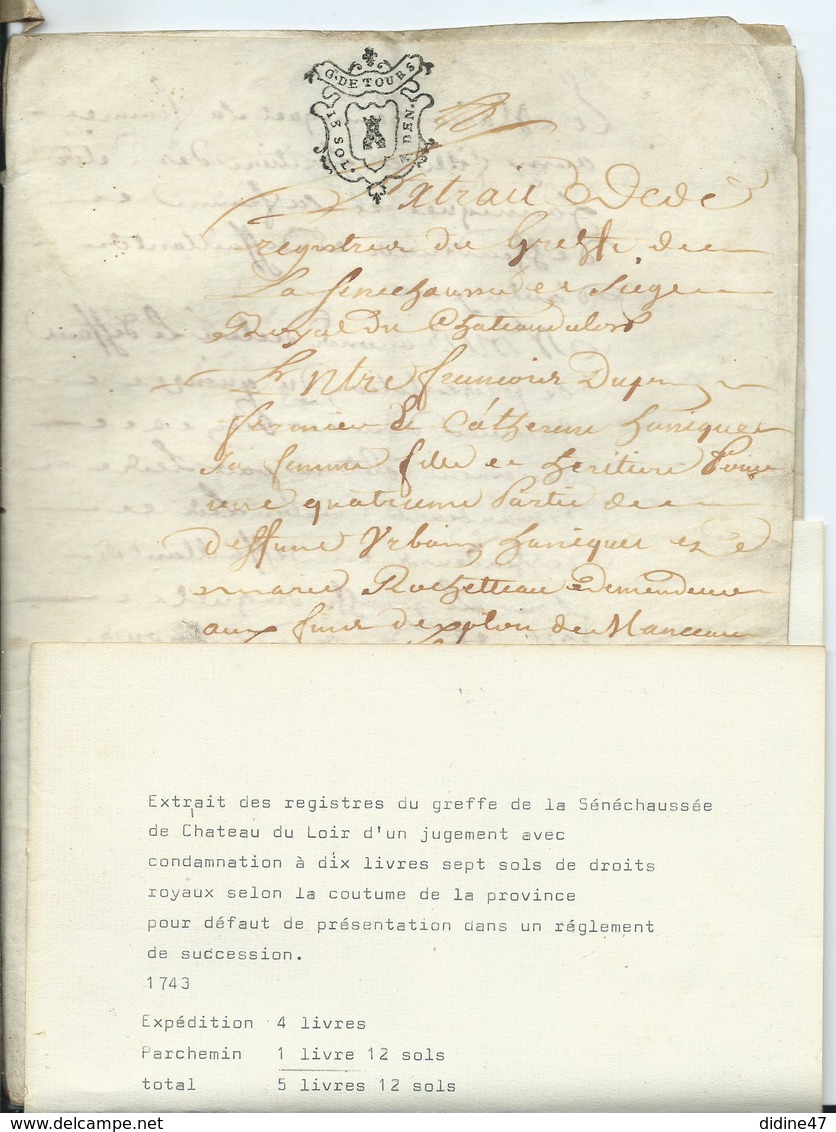 G. DE TOURS
15 SOL. 4 DEN.
Extrait Dede
registres du Greffe de
La senechaussee et Siege
Royal du Chateauduloir
Entre francois Dupn
fermier Et Catherine haniquet
sa femme fille et heritiere Pour
une quatrieme Partie de
deffunt Vrbain haniquet et de
marie Rochetteau demendeurs
aux fins dexploit de Manceau
Extrait des registres du greffe de la Sénéchaussée
de Chateau du Loir d'un jugement avec
condamnation à dix livres sept sols de droits
royaux selon la coutume de la province
pour défaut de présentation dans un réglement
de succession.
1743
Expédition 4 livres
Parchemin 1 livre 12 sols
total 5 livres 12 sols
didine47